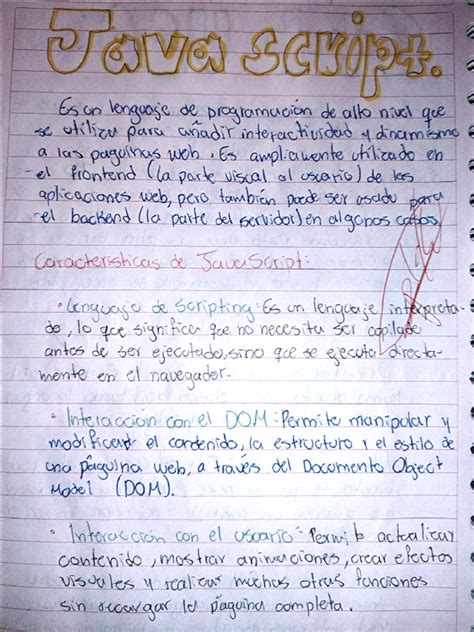 Java script.
Es un lenguaje de programación de alto nivel que
se utiliza para añadir interactividad y dinamismo
a las paguinas web. Es ampliamente utilizado en
el frontend (la parte visual al usuario) de las
aplicaciones web, pero también puede ser usado para
el backend (la parte del servidor) en algonos casos
Caracteristicas de JavaScript:
• Lenguaje de Scripting: Es un lenguaje interpreta-
do, lo que significa que no necesita ser copilado
antes de ser ejecutado, sino que se ejecuta directa-
mente en el navegador.
• Interacción con el DOM: Permite manipular y
modificar el contenido, la estructura y el estilo de
una páguina web, a través del Documento Object
Model (DOM).
• Interacción con el usuario: Permite actualizar
contenido, mostrar animaciones, crear efectos
visuales y realizar muchas otras funciones
sin recargar la paguina completa.